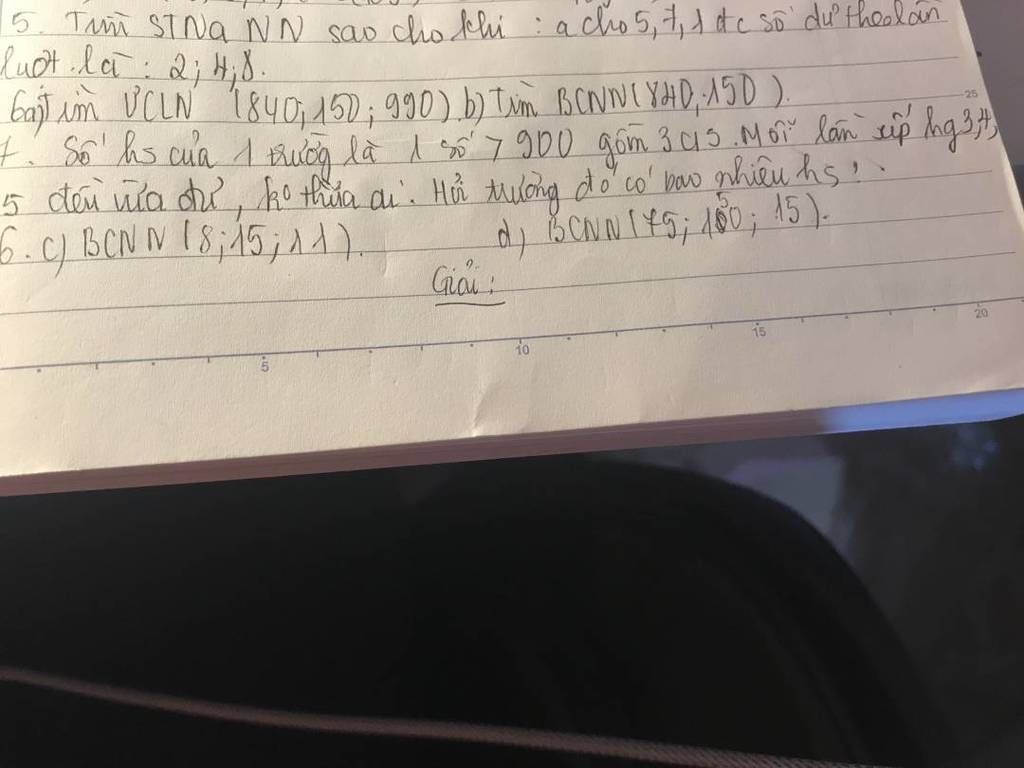 5. Tìm STN a NN sao cho khi : a cho 5, 7, 1 đc số dư theo lần
lượt là : 2 ; 4 ; 8.
6a) Tìm ƯCLN (840; 150; 990) b) Tìm BCNN (840; 150).
7. Số hs của 1 trường là 1 số > 900 gồm 3 c/s. Mỗi lần xếp hg 3, 4,
5 đều vừa đủ, ko thừa ai. Hỏi trường đó có bao nhiêu hs?
6. c) BCNN (8; 15; 11). d) BCNN (75; 150; 15).
Giải:
5 10 15 20 25